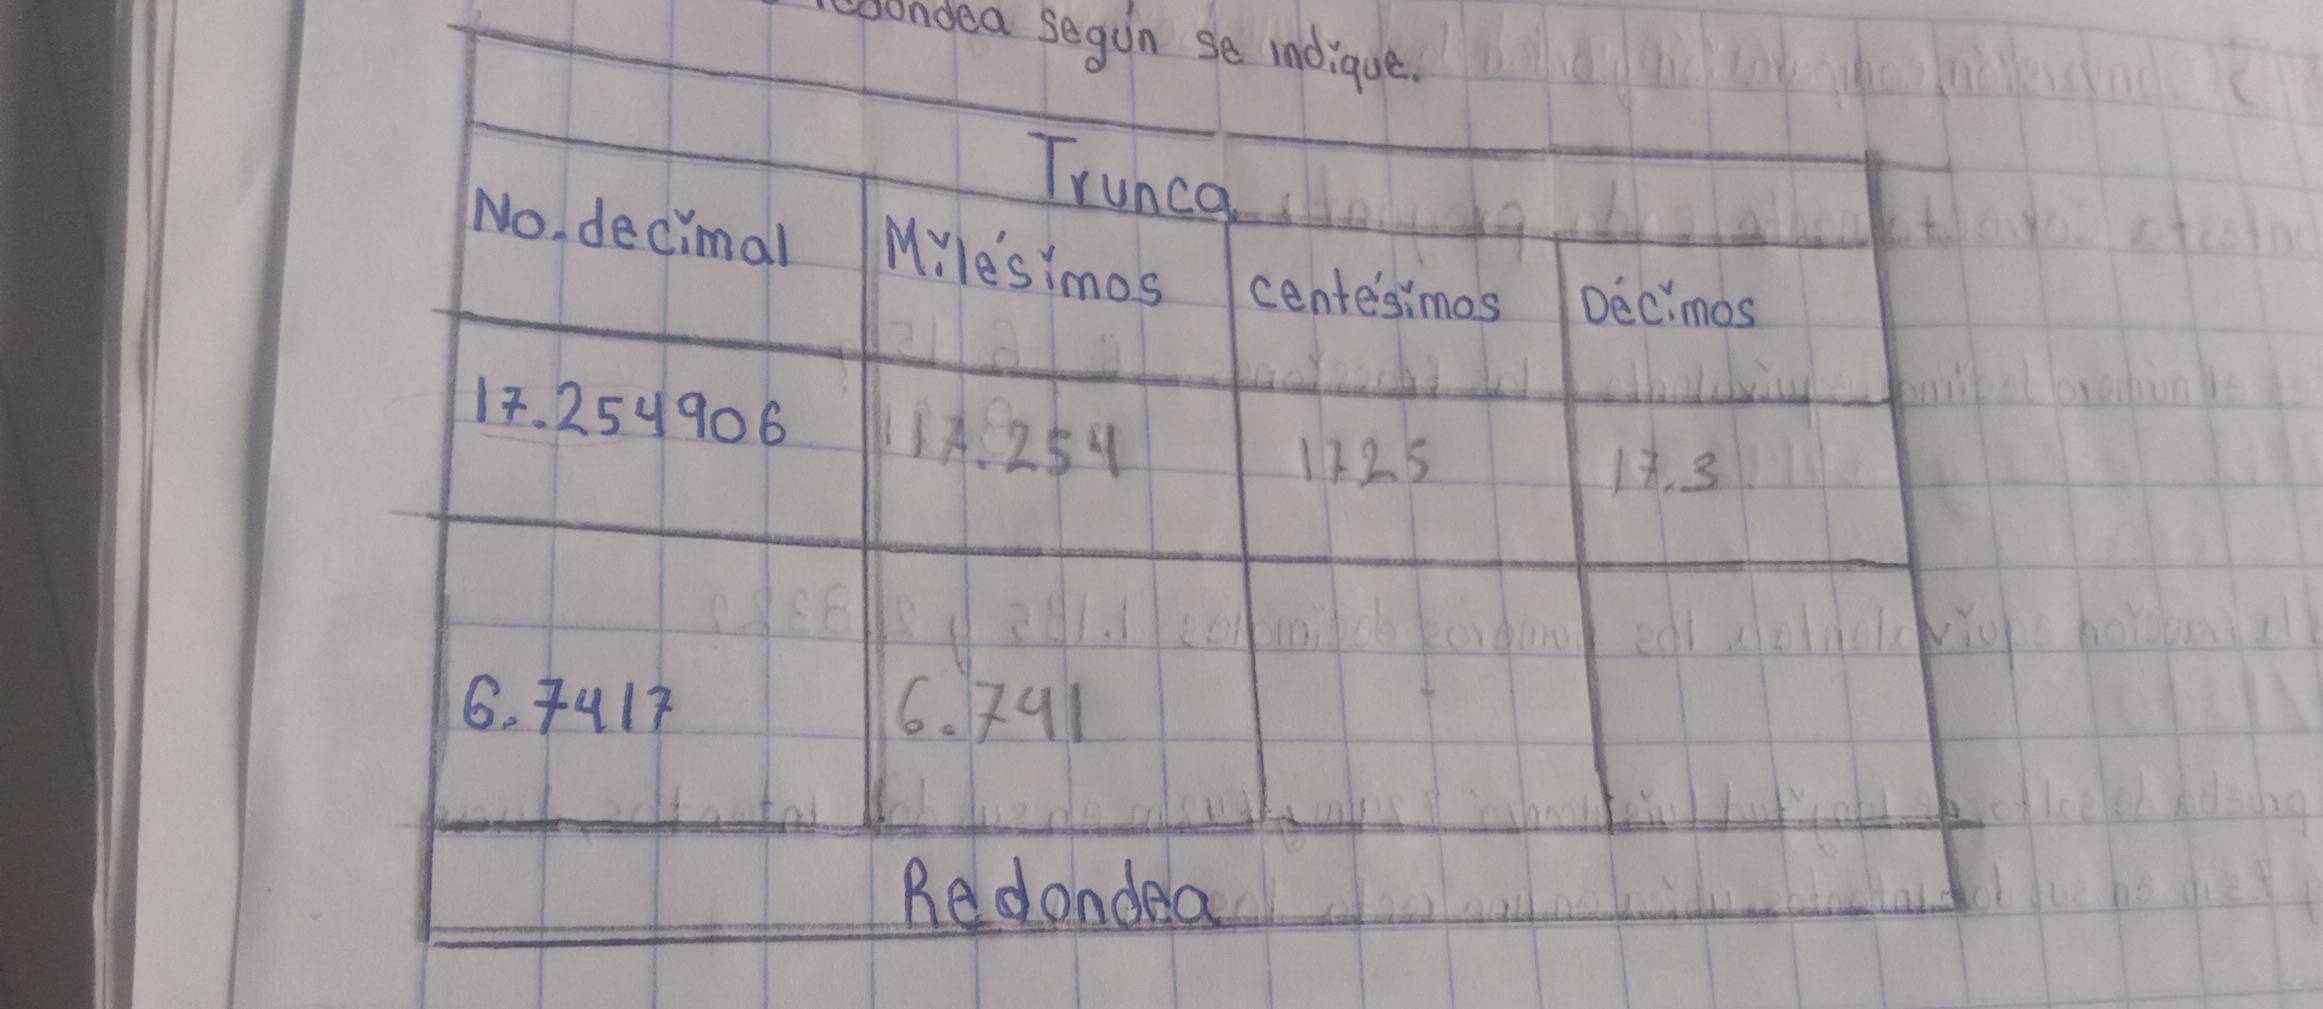 redondea según se indique.
Trunca
No. decimal Milésimos centésimos Décimos
17.254906 17.254 1725 17.3
6.7417 6.741
Redondea